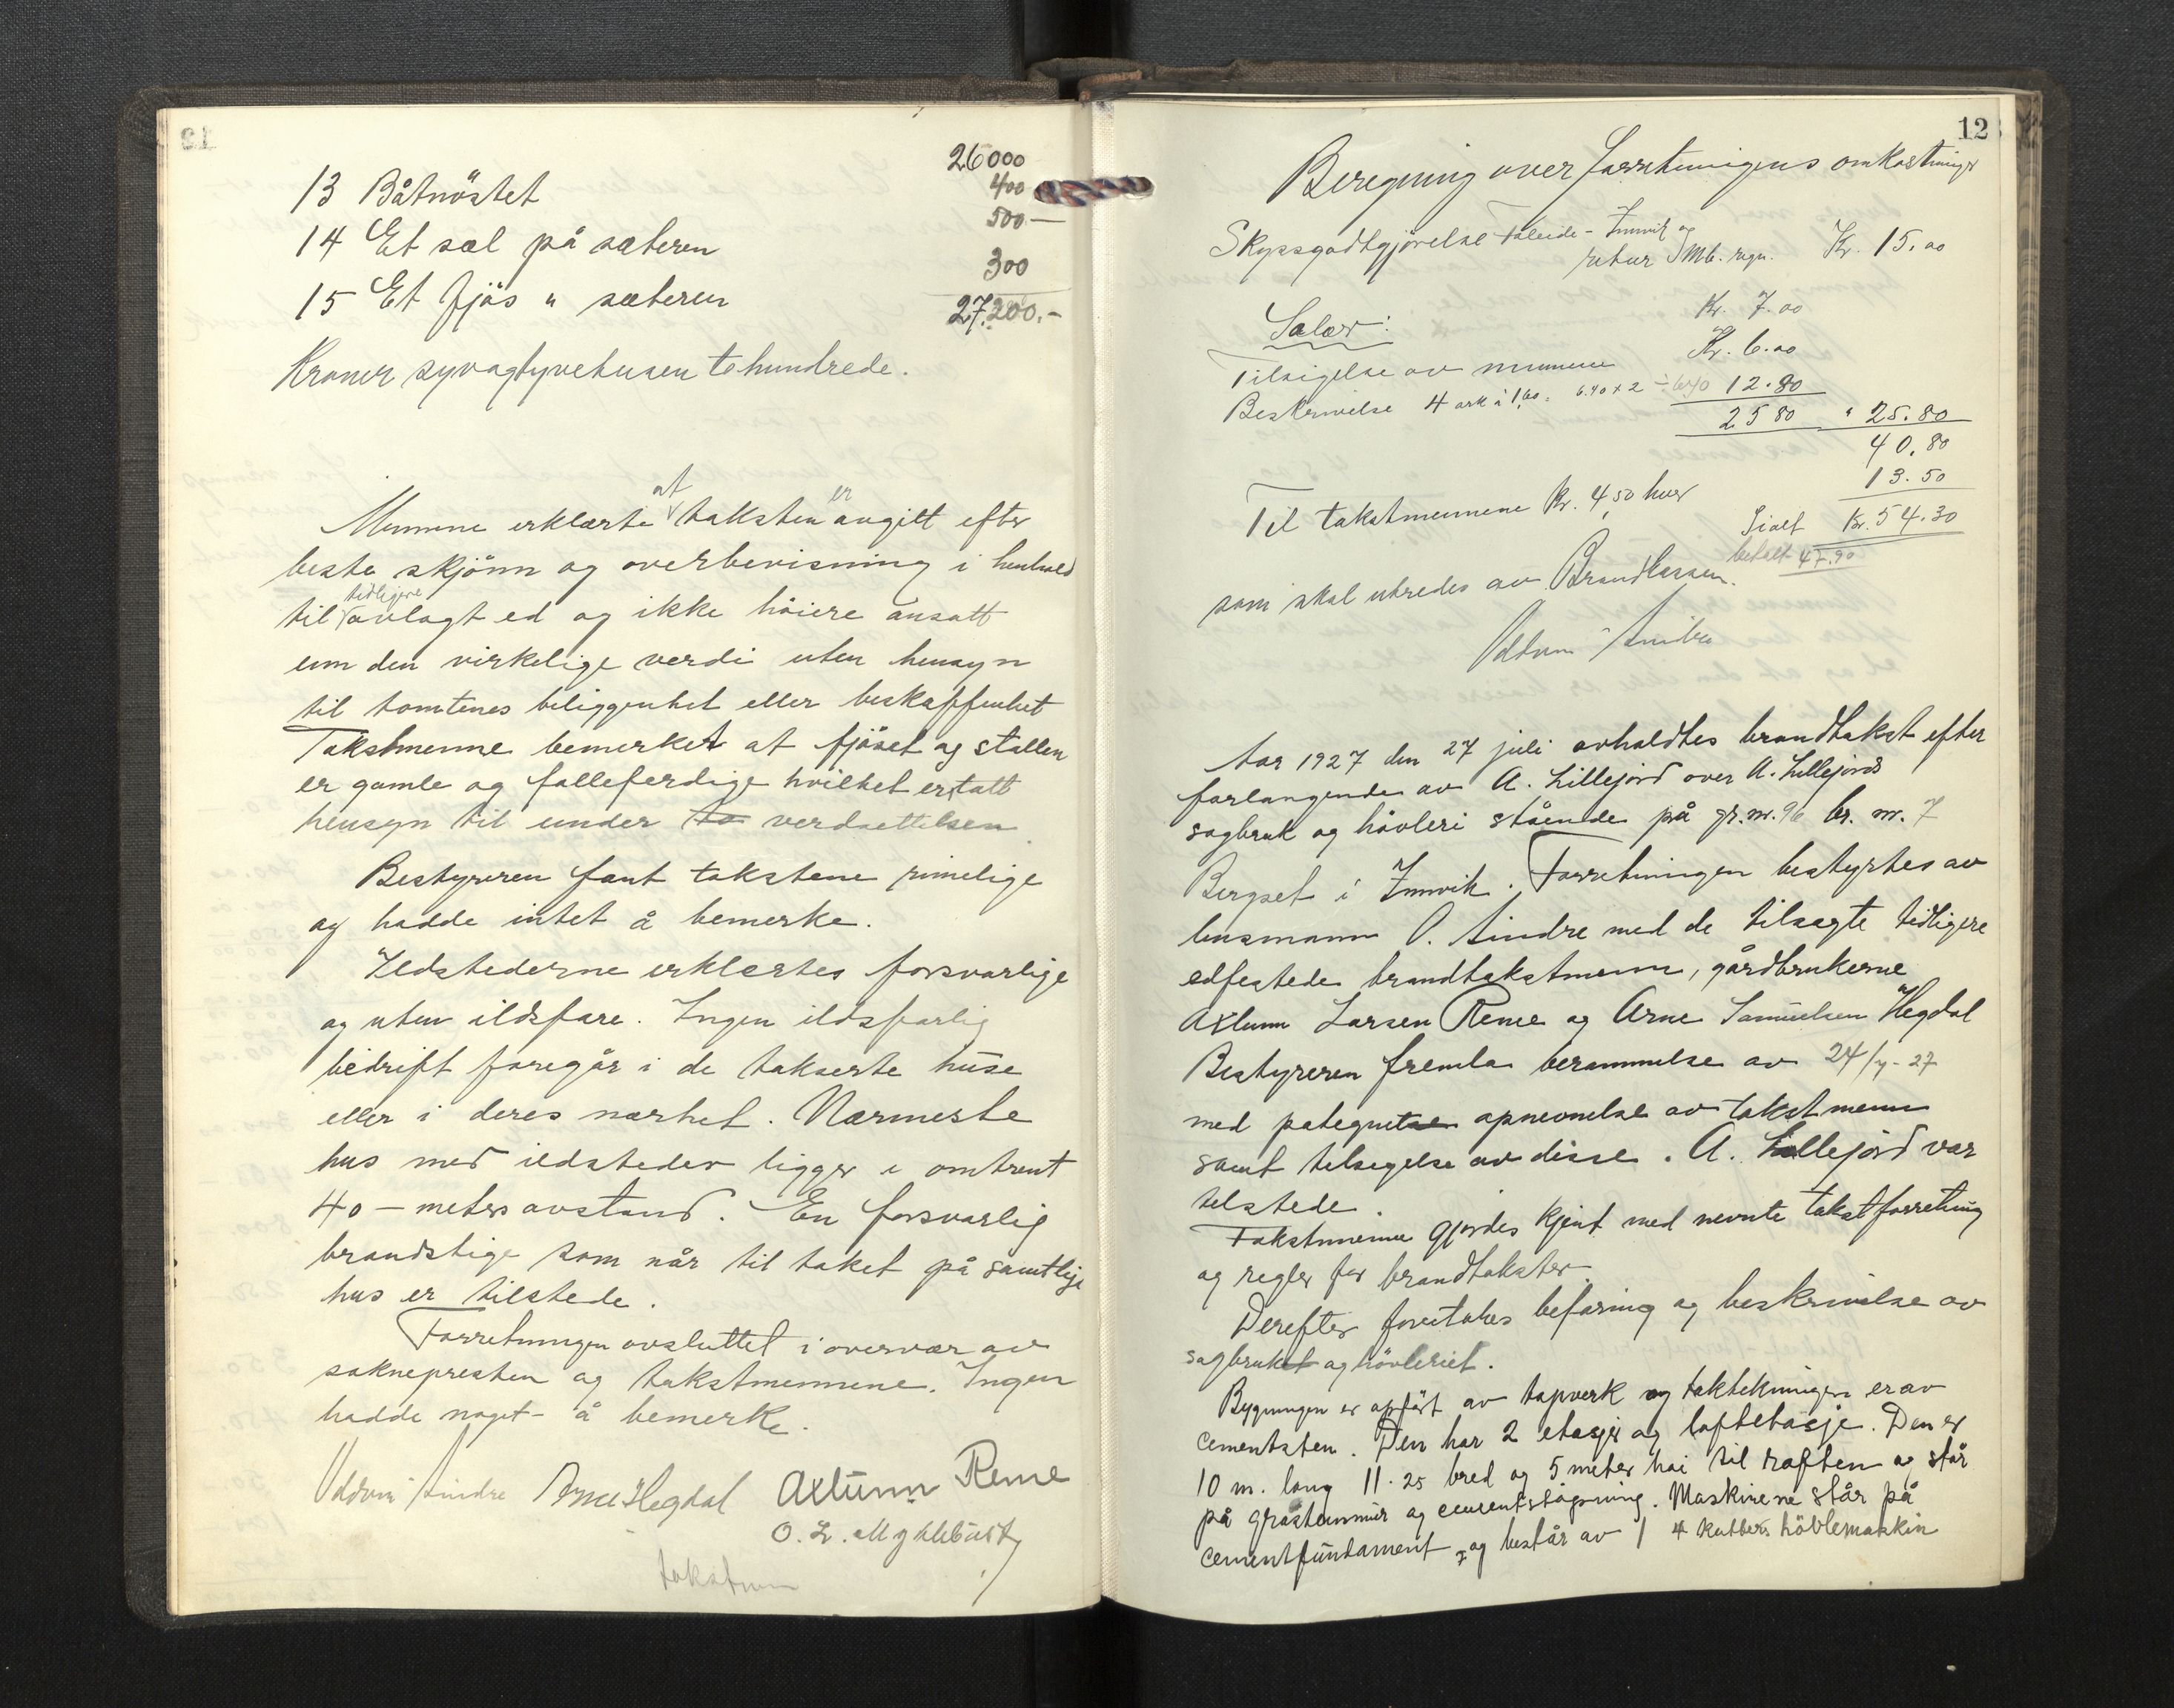 26000
13 Båtnöstet 400
500.—
14 Et sæl på sæteren
300
15 Et fjös " sæteren
27.200.-
Kroner syvogtyvetusen tohundrede.
Mennene erklærte at taksten er avgitt efter
beste skjönn og overbevisning i henhold
til tidligere avlagt ed og ikke höiere ansatt
enn den virkelige verdi uten hensyn
til tomtenes beliggenhet eller beskaffenhet
Takstmenne bemerket at fjöset og stallen
er gamle og falleferdige hvilket er tatt
hensyn til under ta verdsettelsen.
Bestyreren fant takstene rimelige
og hadde intet å bemerke.
Ildstederne erklærtes forsvarlige
og uten ildsfare. Ingen ildsfarlig
bedrift foregår i de takserte huse
eller i deres nærhet. Nærmeste
hus med ildsteder ligger i omtrent
40 — meters avstand. En forsvarlig
brandstige som når til taket på samtlige
hus er tilstede.
Forretningen avsluttet i overvær av
soknepresten og takstmennene. Ingen
hadde noget å bemerke.
Arne Hegdal Axtunn Reme
O. L. Myklebust
takstmenn
12
Beregning over forretningens omkostninger
Skyssgodtgjörelse Faleide - Innvik og
retur Mb. regn. Kr. 15.00
Kr. 7.00
Salær:
Kr. 6.00
Tilsigelse av mennene
Beskrivelse 4 ark à 1,60 = 6.40 x 2 ÷ 640 12.80
25 80 " 25.80
40.80
13.50
Til takstmennene Kr. 4,50 hver
Ialt Kr. 54.30
betalt 47.90
som skal utredes av Brandkassen.
Aar 1927 den 27 juli avholdtes brandtakst efter
forlangende av A. Lillejord over A. Lillejords
sagbruk og hövleri stående på gr.nr. 96 br. nr. 7
Bergset i Innvik. Forretningen bestyrtes av
lensmann O. Aindre med de tilsagte tidligere
edfestede brandtakstmenn, gårdbrukerne
Axtunn Larsen Reme og Arne Samuelsen Hegdal
Bestyreren fremla berammelse av 24/7-27
med pategnet opnevnelse av takstmenn
samt tilsigelse av disse. A. Lillejord var
tilstede.
Takstmenne gjordes kjent med nevnte takstforretning
og regler for brandtakster.
Derefter foretokes befaring og beskrivelse av
sagbruket og hövleriet.
Bygningen er opfört av tapverk og taktekningen er av
cementsten. Den har 2 etasjer og loftetasje. Den er
10 m. lang 11.25 bred og 5 meter höi til raften og står
på gråstenmur og cementstöpning. Maskinene står på
cementfundament, og består av 1 4 kutters hövlemaskin